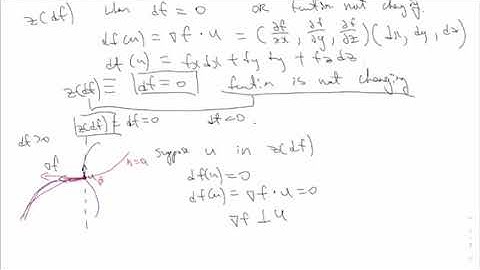 z(df) when df = 0 OR function not changing.
df(u) = ∇f · u = (∂f/∂x, ∂f/∂y, ∂f/∂z)(dx, dy, dz)
df(u) = fx dx + fy dy + fz dz
z(df) ≡ df = 0 function is not changing
z(df) df = 0 df < 0.
df > 0
∇f
suppose u in z(df)
df(u) = 0
df(u) = ∇f · u = 0
∇f ⊥ u